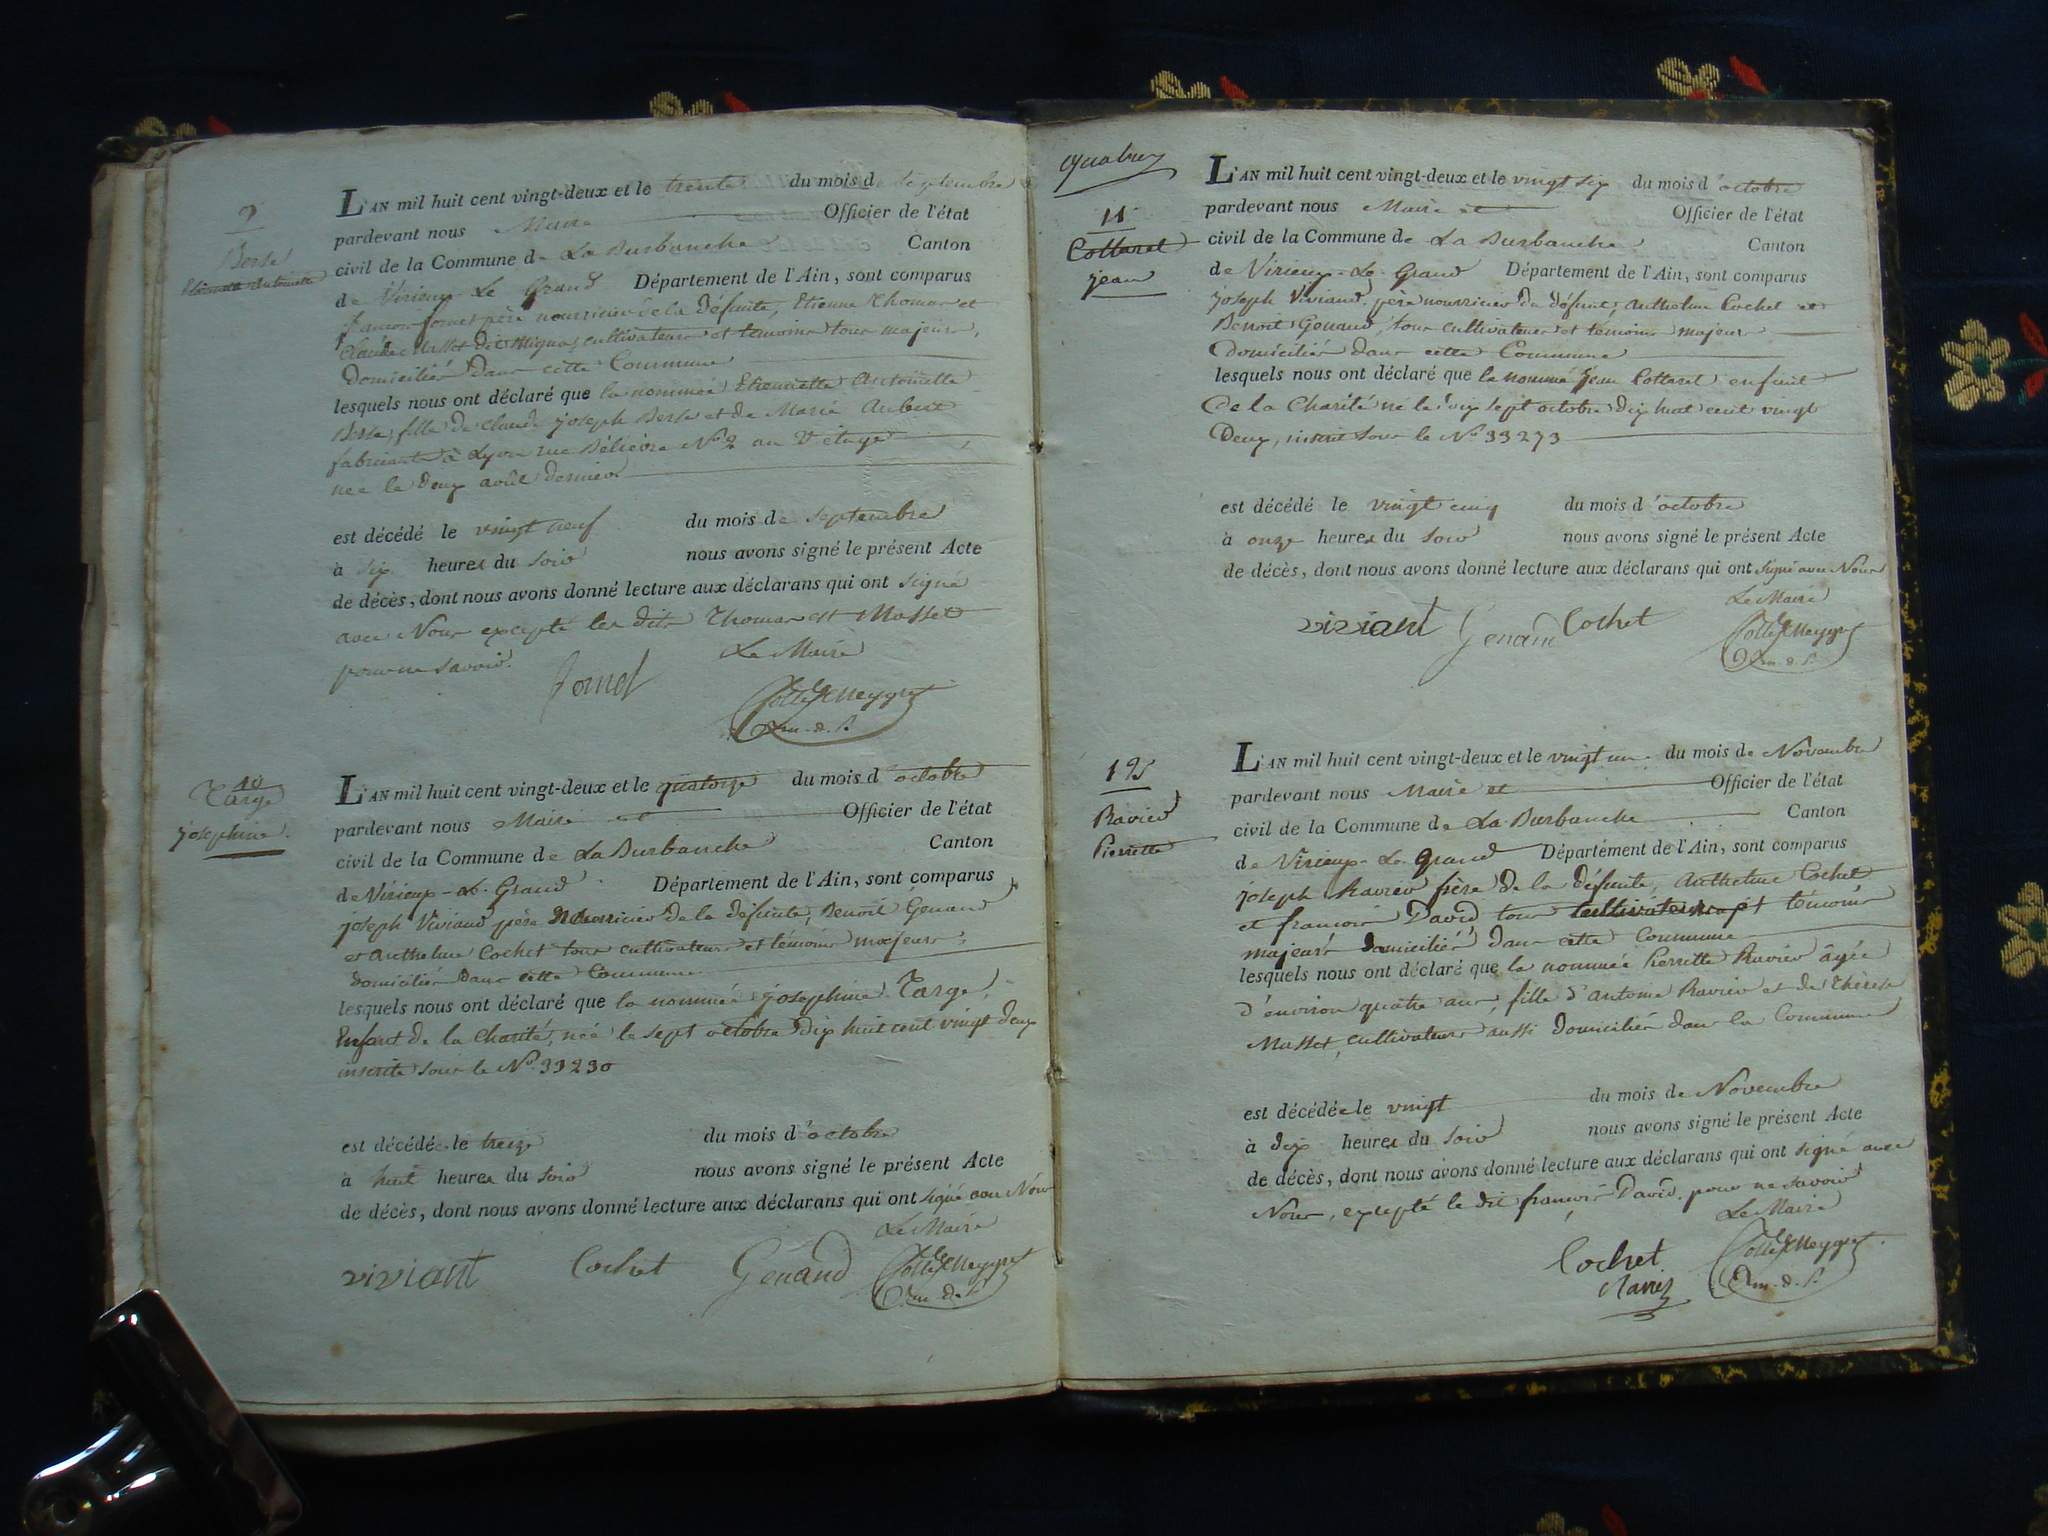 9
Berse
Etiennette Antoinette
L'AN mil huit cent vingt-deux et le trente du mois de septembre
pardevant nous Maire Officier de l'état
civil de la Commune de La Burbanche Canton
de Virieux Le Grand Département de l'Ain, sont comparus
fornet père nourricier de la défunte, Etienne Thomas et
Claude Masset cultivateurs et temoins tous majeurs,
domiciliés dans cette Commune
lesquels nous ont déclaré que la nommée Etiennette Antoinette
Berse, fille de Claude joseph Berse et de Marie Aubert
fabricants à Lyon rue N° 2 au étage
née le deux août dernier
est décédé le vingt neuf du mois de septembre
à six heures du soir nous avons signé le présent Acte
de décès, dont nous avons donné lecture aux déclarans qui ont signé
avec Nous excepté les dits Thomas et Masset
pour ne savoir.
Le Maire
fornet
10
Targe
josephine.
L'AN mil huit cent vingt-deux et le quatorze du mois d'octobre
pardevant nous Maire et Officier de l'état
civil de la Commune de La Burbanche Canton
de Virieux-Le-Grand Département de l'Ain, sont comparus
joseph Viviand père Nourricier de la défunte, Benoît Genand
et Anthelme Cochet tous cultivateurs et témoins majeurs,
domiciliés dans cette Commune
lesquels nous ont déclaré que la nommée josephine Targe,
Enfant de la Charité, née le sept octobre dix huit cent vingt deux
inscrite sous le N° 33230
est décédée le treize du mois d'octobre
à huit heures du soir nous avons signé le présent Acte
de décès, dont nous avons donné lecture aux déclarans qui ont signé avec Nous
Le Maire
viviant Cochet Genand
11
Cottarel
jean
L'AN mil huit cent vingt-deux et le vingt six du mois d'octobre
pardevant nous Maire et Officier de l'état
civil de la Commune de La Burbanche Canton
de Virieux-Le-Grand Département de l'Ain, sont comparus
joseph Viviand, père nourricier du défunt, Anthelme Cochet et
Benoit Genand, tous cultivateurs et témoins majeurs
domiciliés dans cette Commune
lesquels nous ont déclaré que le nommé jean Cottarel enfant
de la Charité né le dix sept octobre dix huit cent vingt
Deux, inscrit sous le N° 33273
est décédé le vingt cinq du mois d'octobre
à onze heures du soir nous avons signé le présent Acte
de décès, dont nous avons donné lecture aux déclarans qui ont signé avec Nous
Le Maire
viviant Genand Cochet
12
Ravier
Pierrette
L'AN mil huit cent vingt-deux et le vingt un du mois de Novembre
pardevant nous Maire et Officier de l'état
civil de la Commune de La Burbanche Canton
de Virieux-Le-Grand Département de l'Ain, sont comparus
joseph Ravier frère de la défunte, Anthelme Cochet
et françois David tous cultivateurs et témoins
majeurs domiciliés dans cette Commune
lesquels nous ont déclaré que la nommée Pierrette Ravier âgée
d'environ quatre ans, fille d'antoine Ravier et de Thérèse
Masset, cultivateurs aussi domiciliés dans la Commune
est décédée le vingt du mois de Novembre
à dix heures du soir nous avons signé le présent Acte
de décès, dont nous avons donné lecture aux déclarans qui ont signé avec
Nous, excepté le dit françois David pour ne savoir
Le Maire
Cochet